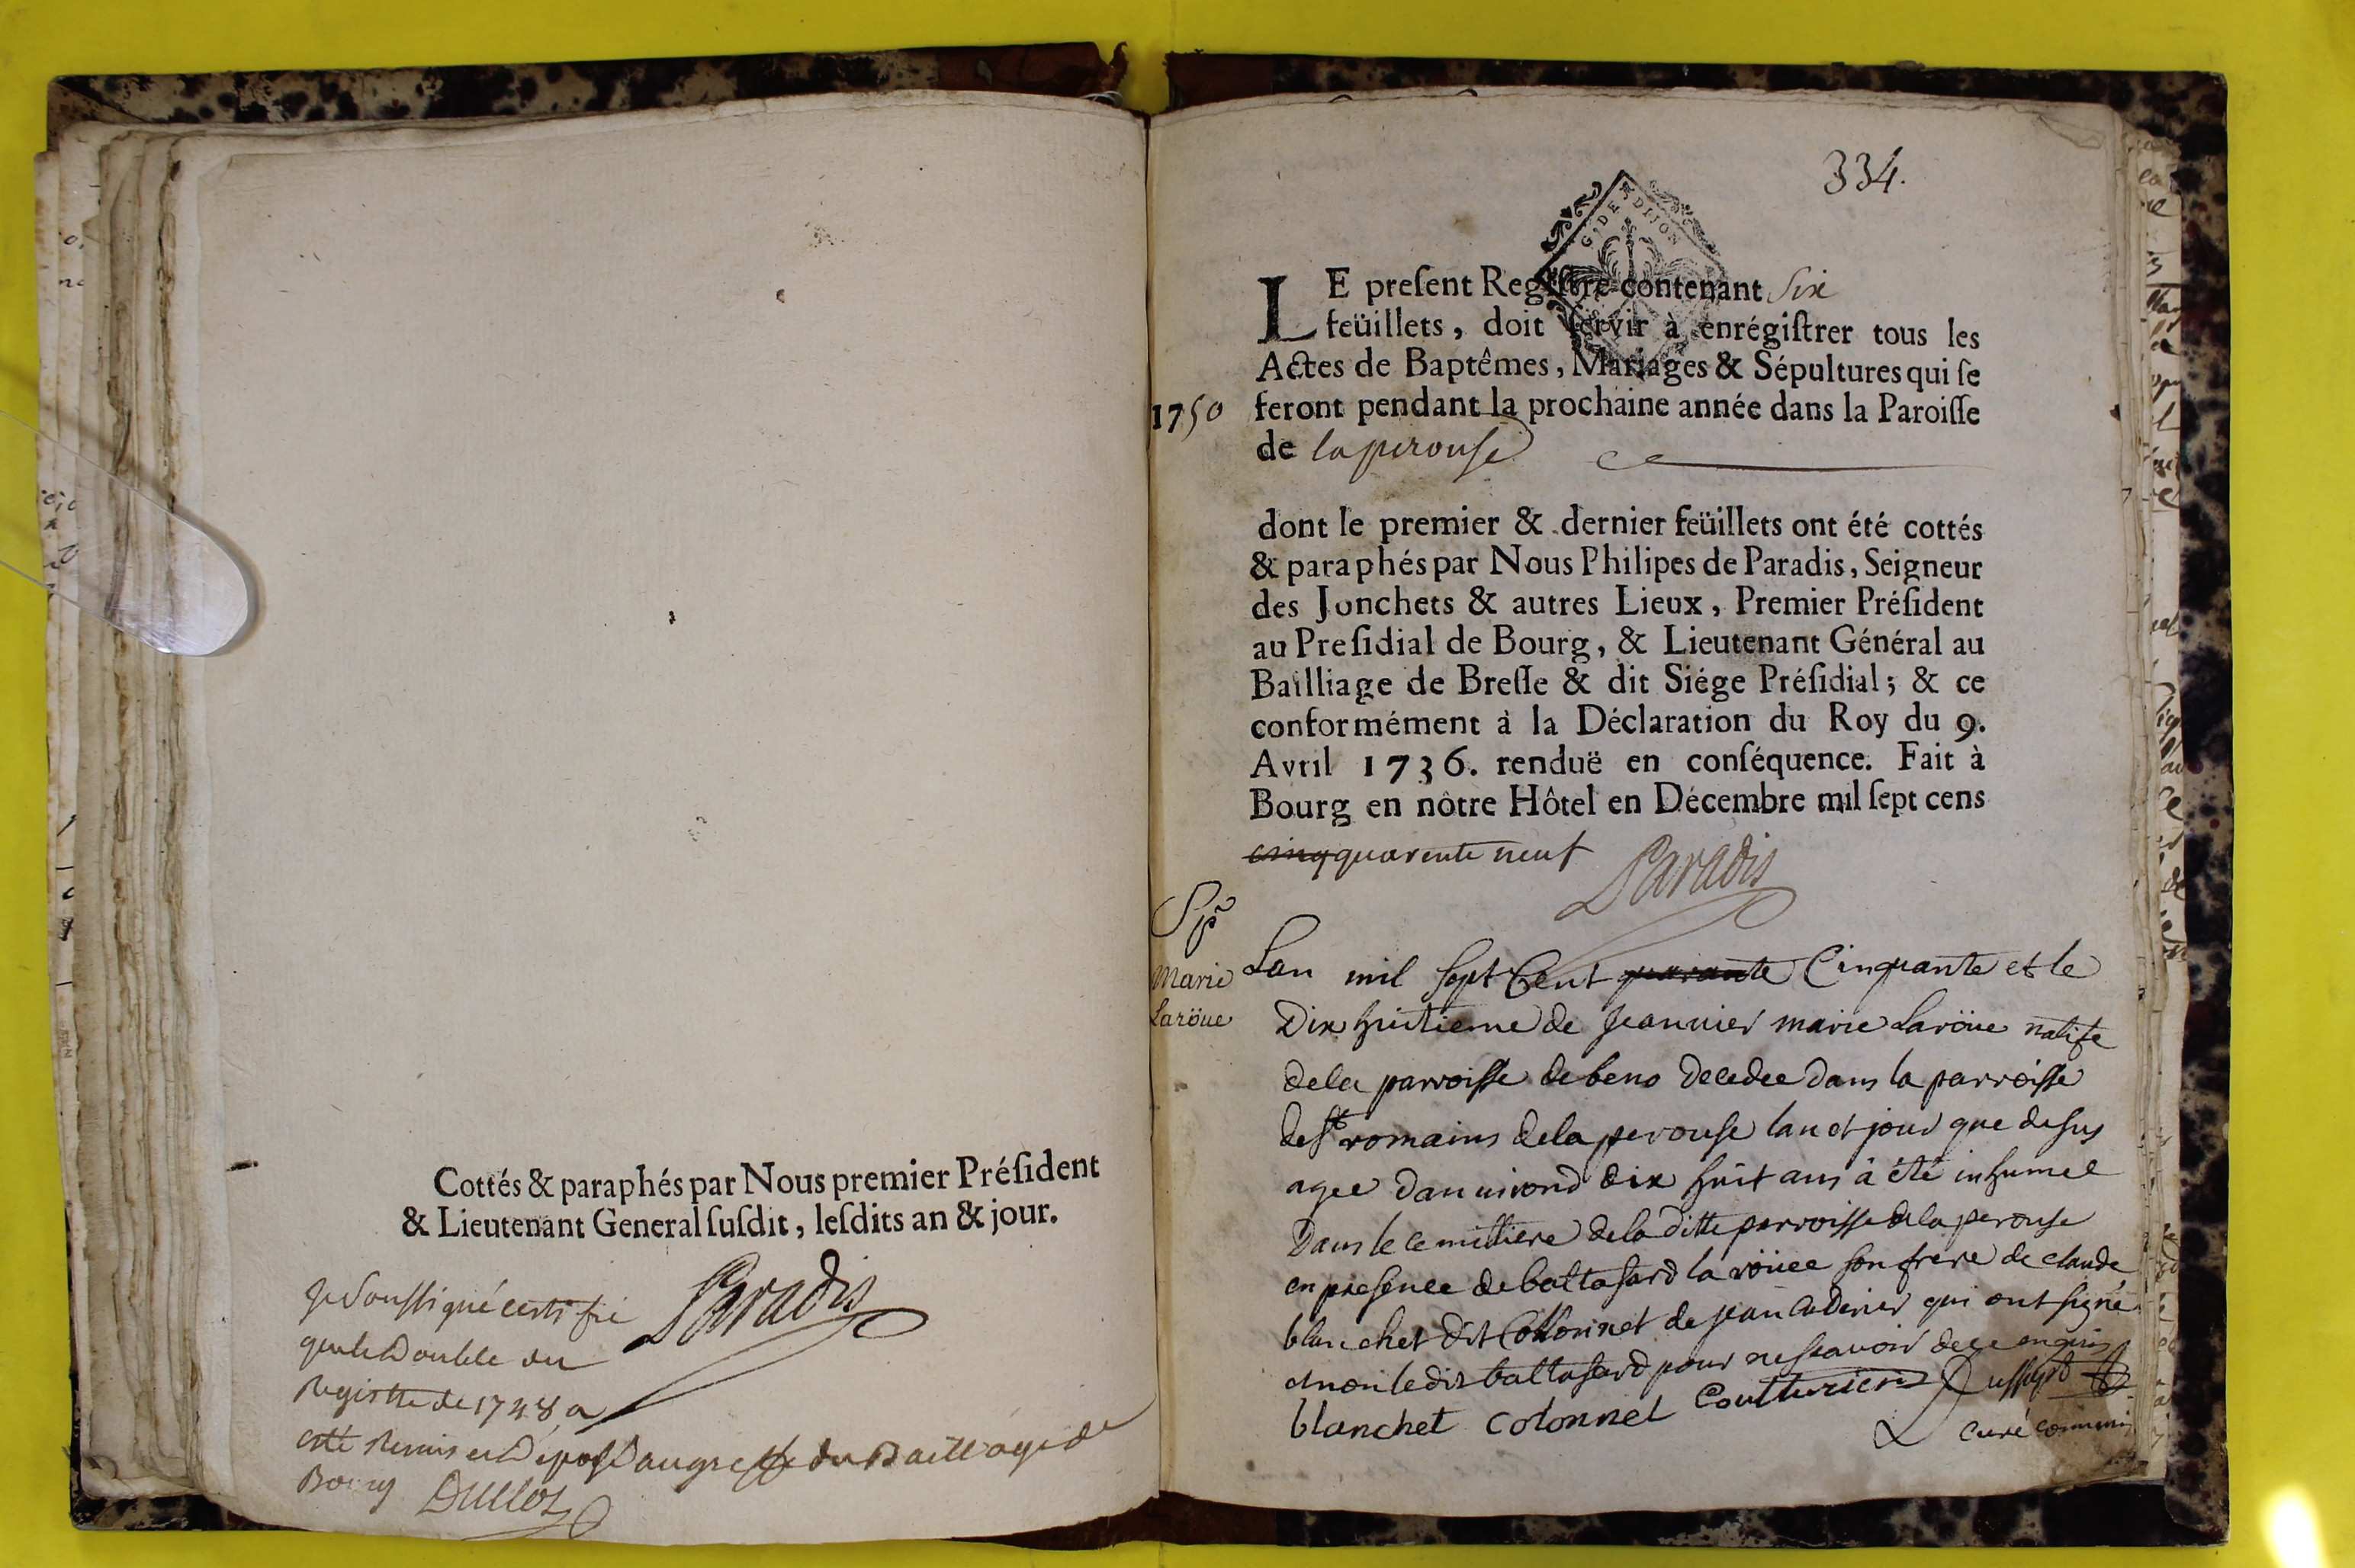 Cottés & paraphés par Nous premier Préſident
& Lieutenant General ſuſdit, leſdits an & jour.
Je Soussigné certifie
que le Double du
Registre de 1748 a
esté Remis et Déposé au greffe du Bailliage de
Bourg Dullot
Paradis
334.
G. DE DIJON
LE preſent Regiſtre contenant Six
feüillets, doit ſervir à enrégiſtrer tous les
Actes de Baptêmes, Mariages & Sépultures qui ſe
1750 feront pendant la prochaine année dans la Paroiſſe
de laperouse
dont le premier & dernier feüillets ont été cottés
& paraphés par Nous Philipes de Paradis, Seigneur
des Jonchets & autres Lieux, Premier Préſident
au Preſidial de Bourg, & Lieutenant Général au
Bailliage de Breſſe & dit Siége Préſidial; & ce
conformément à la Déclaration du Roy du 9.
Avril 1736. renduë en conſéquence. Fait à
Bourg en nôtre Hôtel en Décembre mil ſept cens
cinq quarente neuf Paradis
Sp
Marie
Laröue
Lan mil Sept Cent quarante Cinquante et le
Dix huitieme de Jeanvier marie Laröue natife
dela parroisse de beno decedee dans la parroisse
de St romains dela perouse lan et jour que desus
agee danvirond dix huit ans à été inhumee
Dans le cemittiere dela ditte parroisse dela perouse
en presence de baltasard la röuee son frere de claude
blanchet dit Collonnet de jean qui ont signé
et non ledit baltasard pour ne scavoir de ce enquis
blanchet colonnel Coutturier
curé commis